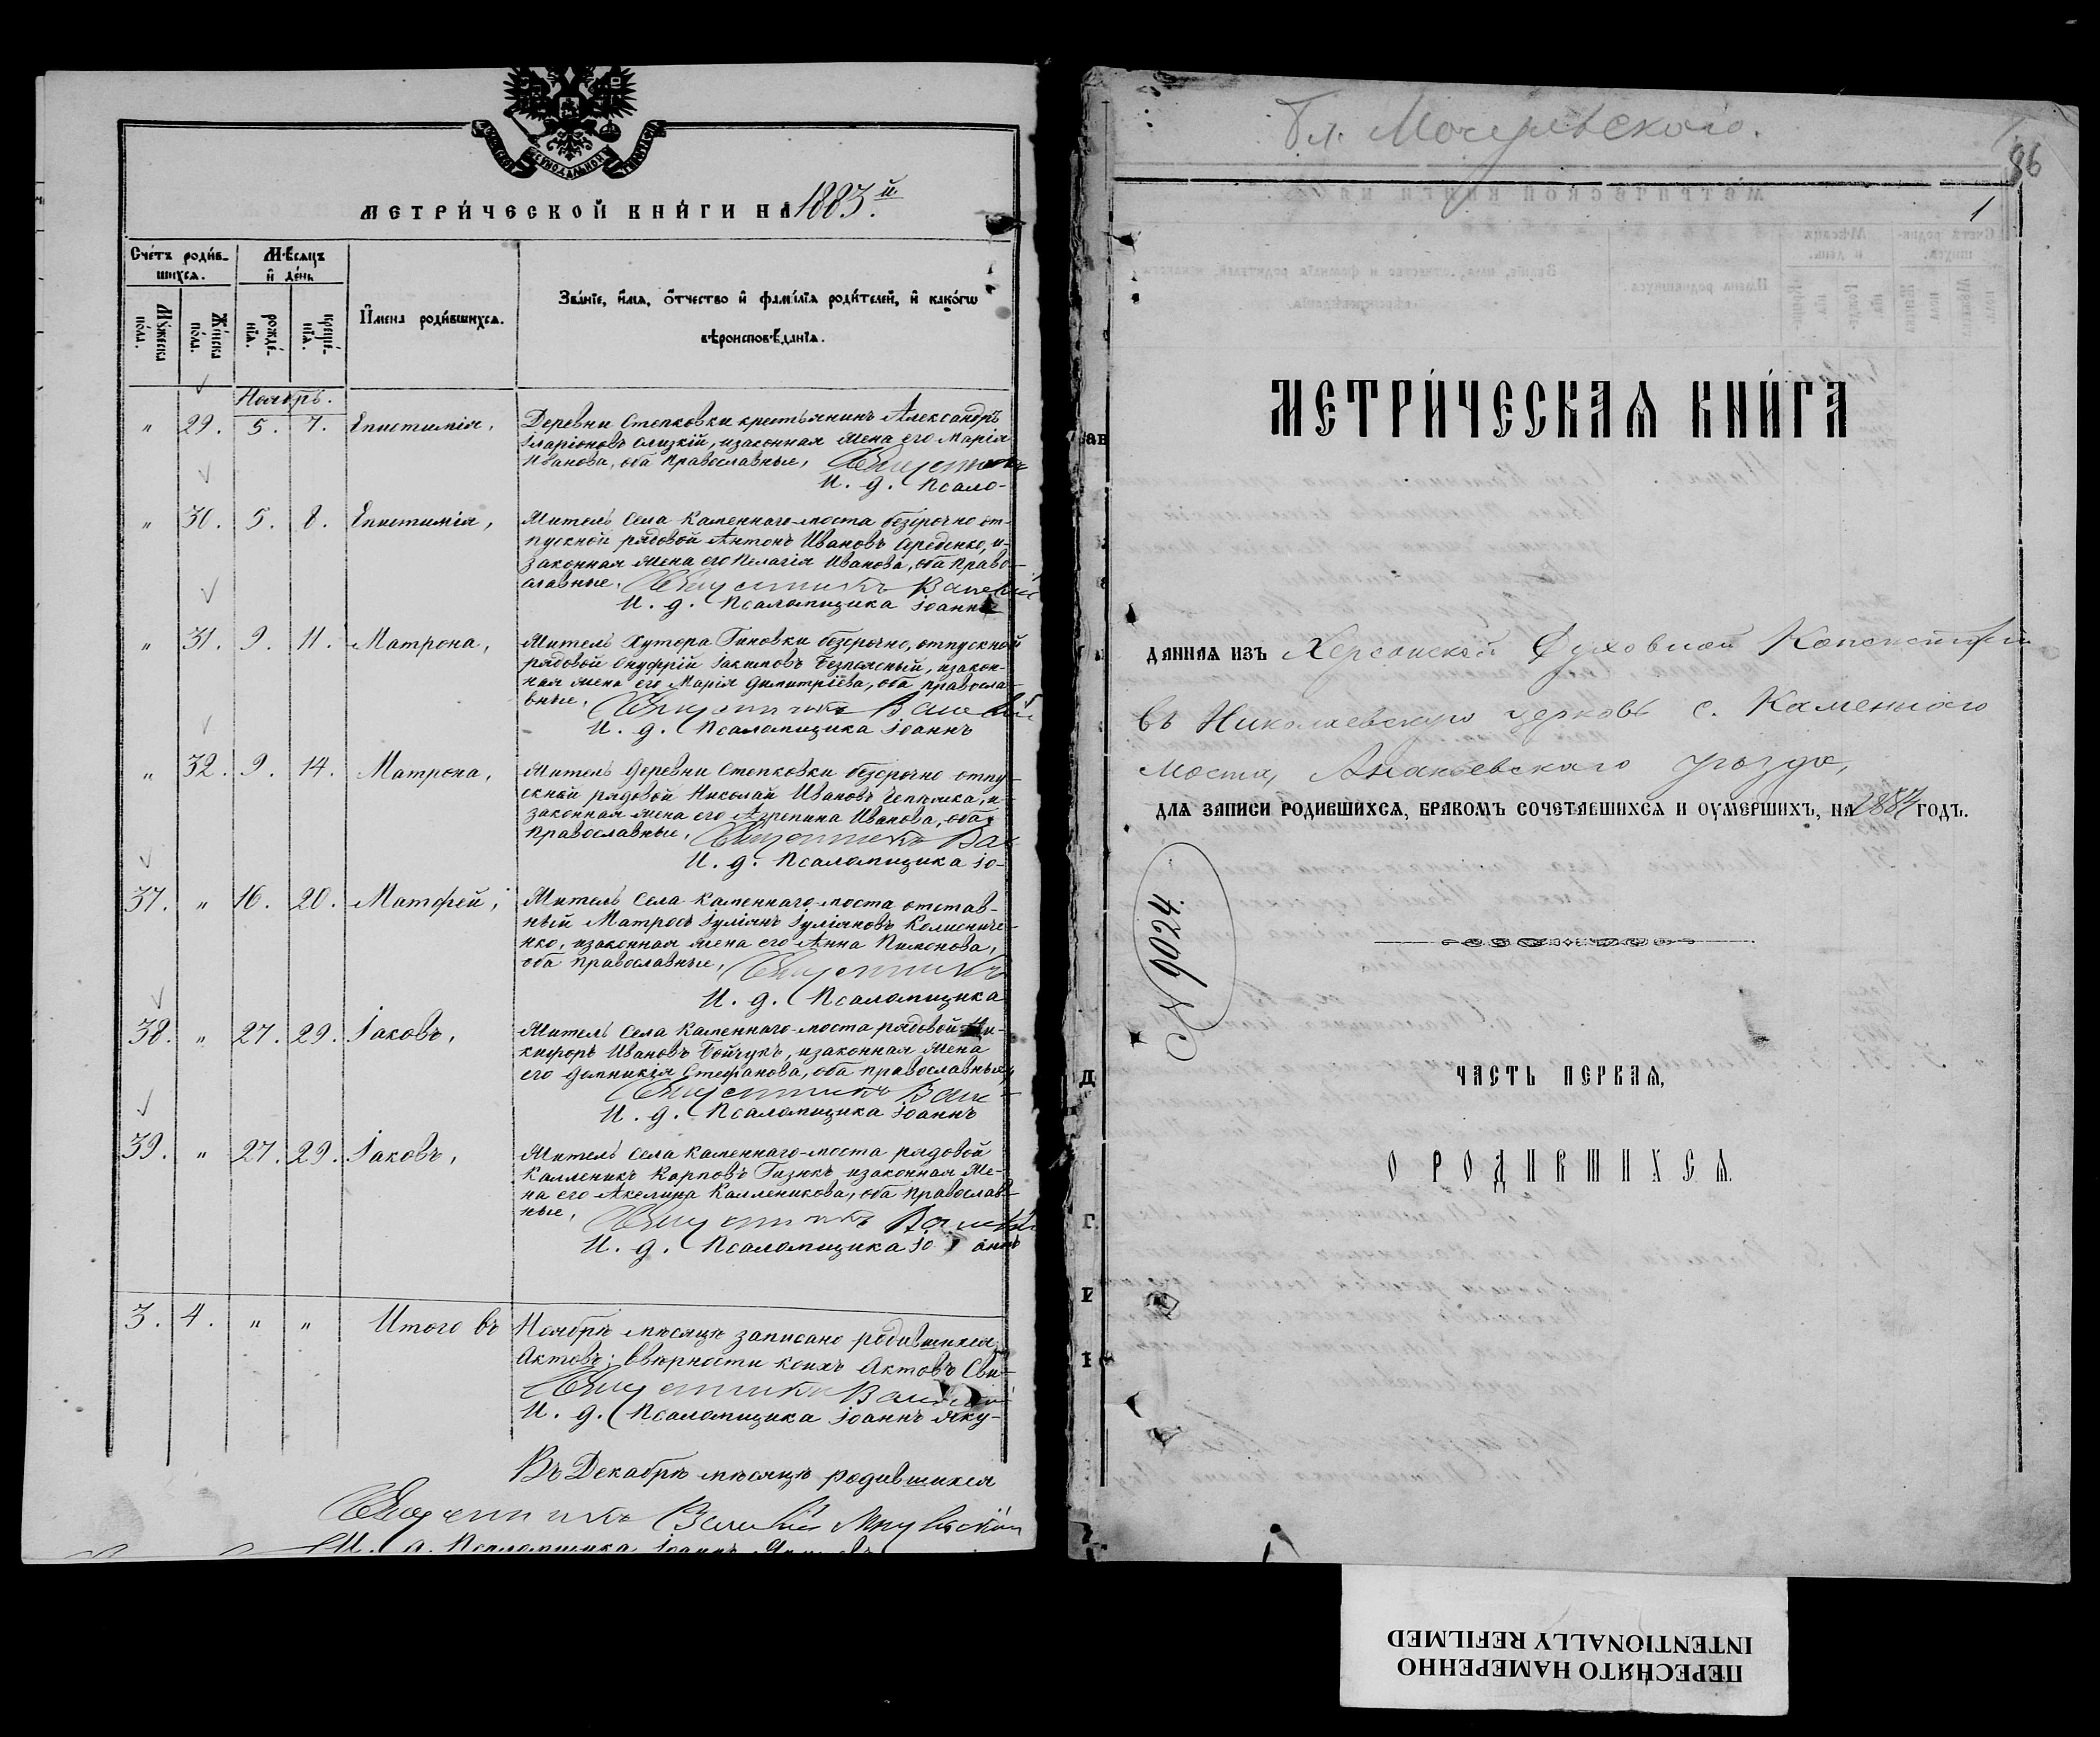 МЕТРИЧЕСКОЙ КНИГИ НА 1883.й
Счетъ родив-
шихся.
Мѣсяцъ
и день
Мужеска
пола.
Женска
пола.
рожде-
нія.
креще-
нія.
Имена родившихся.
Званіе, имя, отчество и фамилія родителей, и какого
вѣроисповѣданія.
Ноябрь.
" 29. 5. 7. Епистимія,
Деревни Степковки крестьянинъ Александръ
Іларіоновъ Слизкій, изаконная жена его Марія
Иванова, оба православные, Священникъ
И. д. Псало-
" 30. 5. 8. Епистимія,
Житель Села Каменнаго-моста безсрочно от-
пускной рядовой Антонъ Ивановъ Середенко, и-
законная жена его Пелагія Иванова, оба право-
славные, Священникъ Васелій
И. д. Псаломщика Іоаннъ
" 31. 9. 11. Матрона,
Житель Хутора Гиновки безсрочно, отпускной
рядовой Онуфрій Іакимовъ Безпясный, изакон-
ная жена его Марія Димитріева, оба правосла-
вные, Священникъ Васелій
И. д. Псаломщика Іоаннъ
" 32. 9. 14. Матрона,
Житель Деревни Степковки безсрочно отпу-
скной рядовой Николай Ивановъ Чепѣжка, и-
законная жена его Агрепина Иванова, оба
Православные, Священникъ Ва-
И. д. Псаломщика Іо-
37. " 16. 20. Матфей,
Житель Села Каменнаго-моста отстав-
ный Матросъ Іуліянъ Іуліяновъ Колисниче-
нко, изаконная жена его Анна Пимонова,
оба православные, Священникъ
И. д. Псаломщика
38. " 27. 29. Іаковъ,
Житель Села Каменнаго-моста рядовой Ни-
кифоръ Ивановъ Бойчукъ, изаконная жена
его Домникія Стефанова, оба православные,
Священникъ Васе-
И. д. Псаломщика Іоаннъ
39. " 27. 29. Іаковъ,
Житель Села Каменнаго-моста рядовой
Калленикъ Карповъ Гизикъ изаконная же-
на его Акелина Калленикова, оба православ-
ные, Священникъ Васелій
И. д. Псаломщика Іоаннъ
3. 4. " " Итого въ Ноябрѣ мѣсяцѣ записано родившихся
Актовъ; Ввѣрности коихъ Актовъ Сви-
Священникъ Васелій
И. д. Псаломщика Іоаннъ Яку-
Въ Декабрѣ мѣсяцѣ родившихся
Священникъ Васелій
И. д. Псаломщика Іоаннъ
86
1
МЕТРИЧЕСКАЯ КНИГА
ДАННАЯ ИЗЪ Херсонской Духовной Консисторіи
въ Николаевскую церковь с. Каменнаго
Моста, Ананьевскаго уѣзда,
ДЛЯ ЗАПИСИ РОДИВШИХСЯ, БРАКОМЪ СОЧЕТАВШИХСЯ И ОУМЕРШИХЪ, НА 1884 ГОДЪ.
№ 9024.
ЧАСТЬ ПЕРВАЯ,
О РОДИВШИХСЯ.
ПЕРЕСНЯТО НАМЕРЕННО
INTENTIONALLY REFILMED